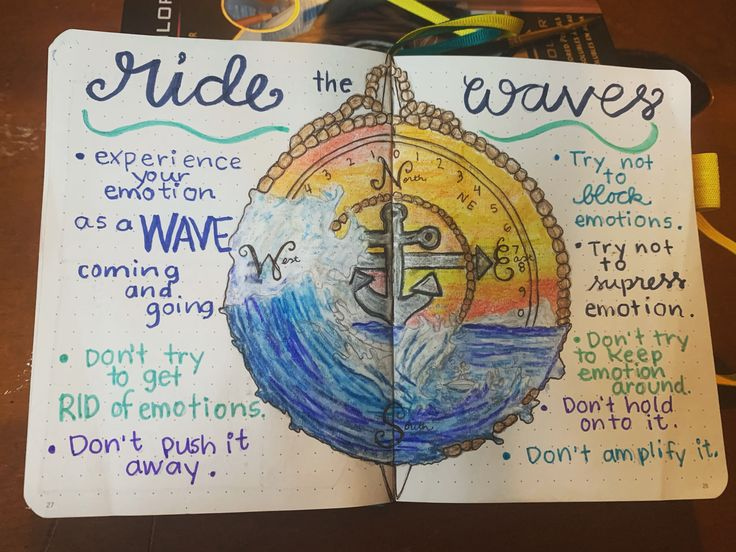 ride the waves
• experience
your
emotion
as a WAVE
coming
and
going
• Don't try
to get
RID of emotions.
• Don't push it
away.
27
North
NE
East
South
West
4 3 2 1 0 1 2 3 4 5 6 7 8 9 0
• Try not
to
block
emotions.
• Try not
to
supress
emotion.
• Don't try
to keep
emotion
around.
• Don't hold
onto it.
• Don't amplify it.